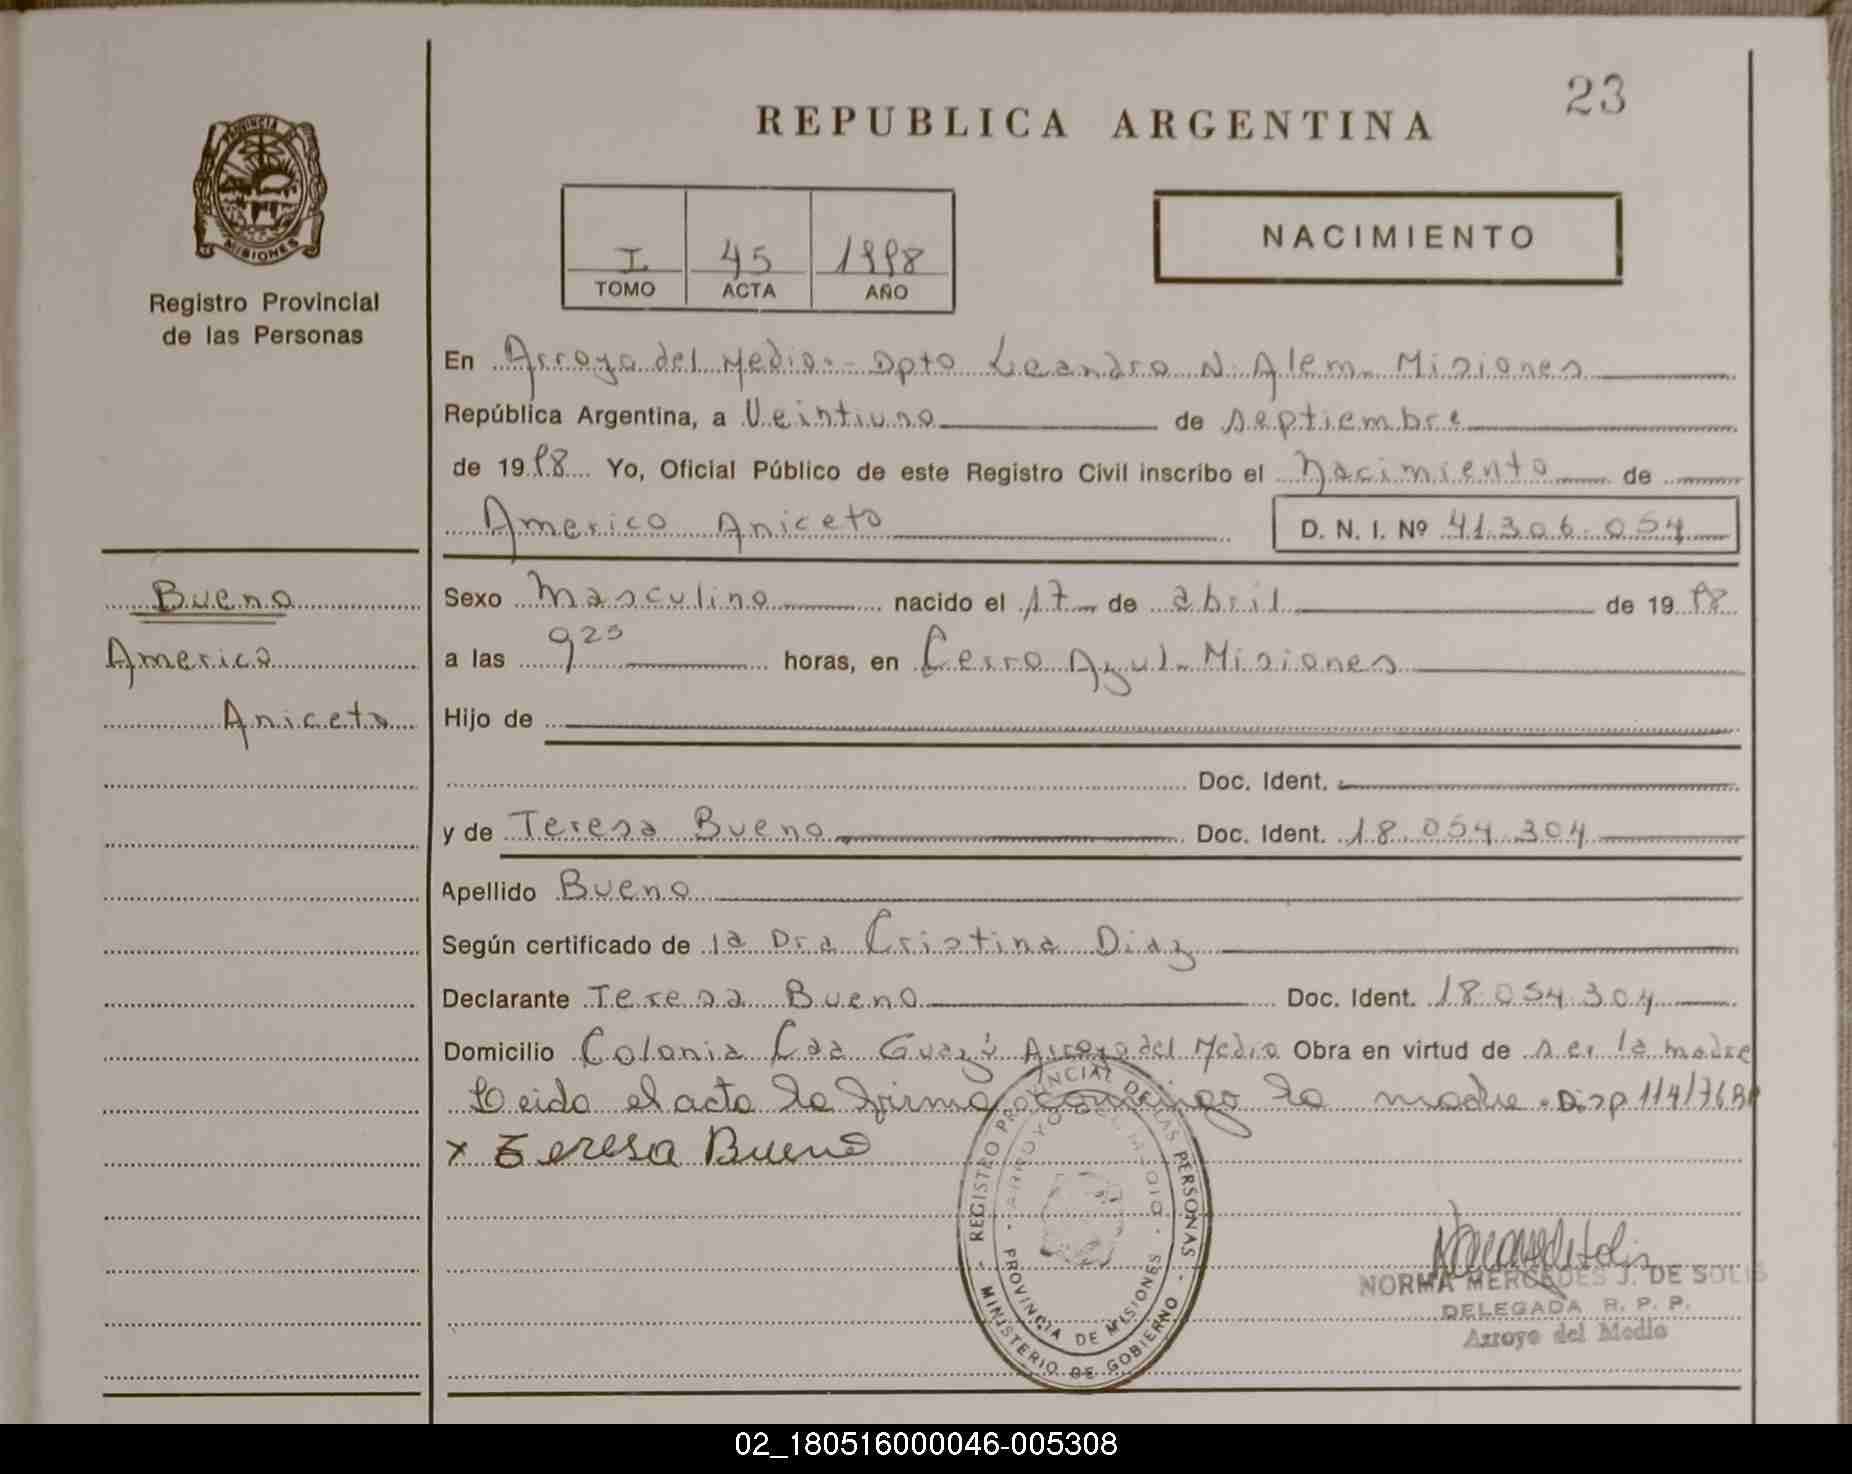 23
REPUBLICA ARGENTINA
PROVINCIA DE MISIONES
Registro Provincial
de las Personas
I 45 1998
TOMO ACTA AÑO
NACIMIENTO
En Arroyo del Medio.- Dpto Leandro N. Alem. Misiones
República Argentina, a Veintiuno de septiembre
de 1998 Yo, Oficial Público de este Registro Civil inscribo el nacimiento de
Americo Aniceto D. N. I. Nº 41.306.054
Bueno
Americo
Aniceto
Sexo masculino nacido el 17 de abril de 1998
a las 9²⁵ horas, en Cerro Azul. Misiones
Hijo de
Doc. Ident.
y de Teresa Bueno Doc. Ident. 18.054.304
Apellido Bueno
Según certificado de la Dra Cristina Diaz
Declarante Teresa Bueno Doc. Ident. 18.054.304
Domicilio Colonia Caa Guazú Arroyo del Medio Obra en virtud de ser la madre
Leido el acto la firma conmigo la madre. Disp 114/76
x Teresa Bueno
REGISTRO PROVINCIAL DE LAS PERSONAS
MINISTERIO DE GOBIERNO
ARROYO DEL MEDIO
PROVINCIA DE MISIONES
NORMA MERCEDES J. DE SOLIS
DELEGADA R. P. P.
Arroyo del Medio
02_180516000046-005308